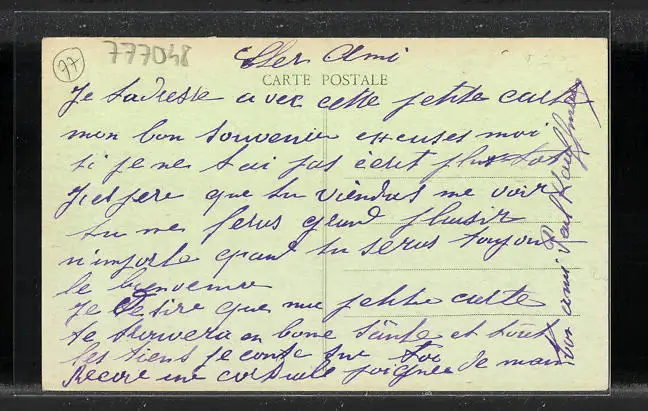 77
777048
Cher Ami
CARTE POSTALE
Je t'adresse avec cette petite carte
mon bon souvenir excuses moi
si je ne t'ai pas écrit plus tot
J'espere que tu viendras me voir
tu me feras grand plaisir
n'importe quand tu seras toujours
le bienvenu
Je désire que ma petite carte
te trouvera en bone santé et tout
les tiens je conte sur toi
Recois une cordiale poignée de main
ton ami Paul Kauffman